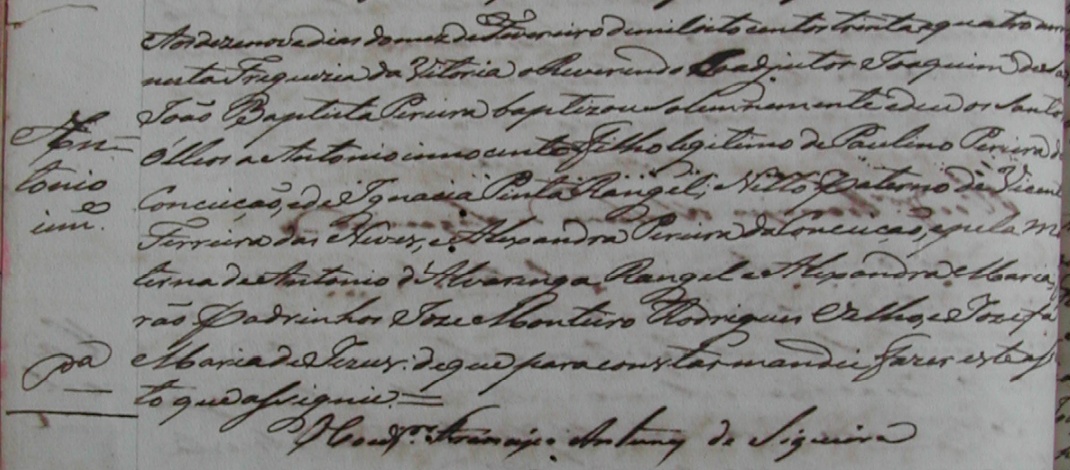 Aos dezenove dias do mez de Fevereiro de mil oito centos trinta e quatro
nesta Freguezia da Vitoria o Reverendo Coadjutor Joaquim de
João Baptista Pereira baptizou solemnamente e deu os Santos
An-
Olleos a Antonio innocente Filho legitimo de Paulino Pereira da
tonio
Conceição, e de Ignacia Pinta Rangel; Netto Paterno de Vicente
inn.e
Ferreira das Neves, e Alexandra Pereira da Conceição, e pela Ma
terna de Antonio d'Alvarenga Rangel e Alexandra Maria
Padrinhos Joze Monteiro Rodrigues Velho, e Jozefa
Maria de Jezus: de que para constar mandei fazer este as
to que assignei. =
Antunes de Siqueira